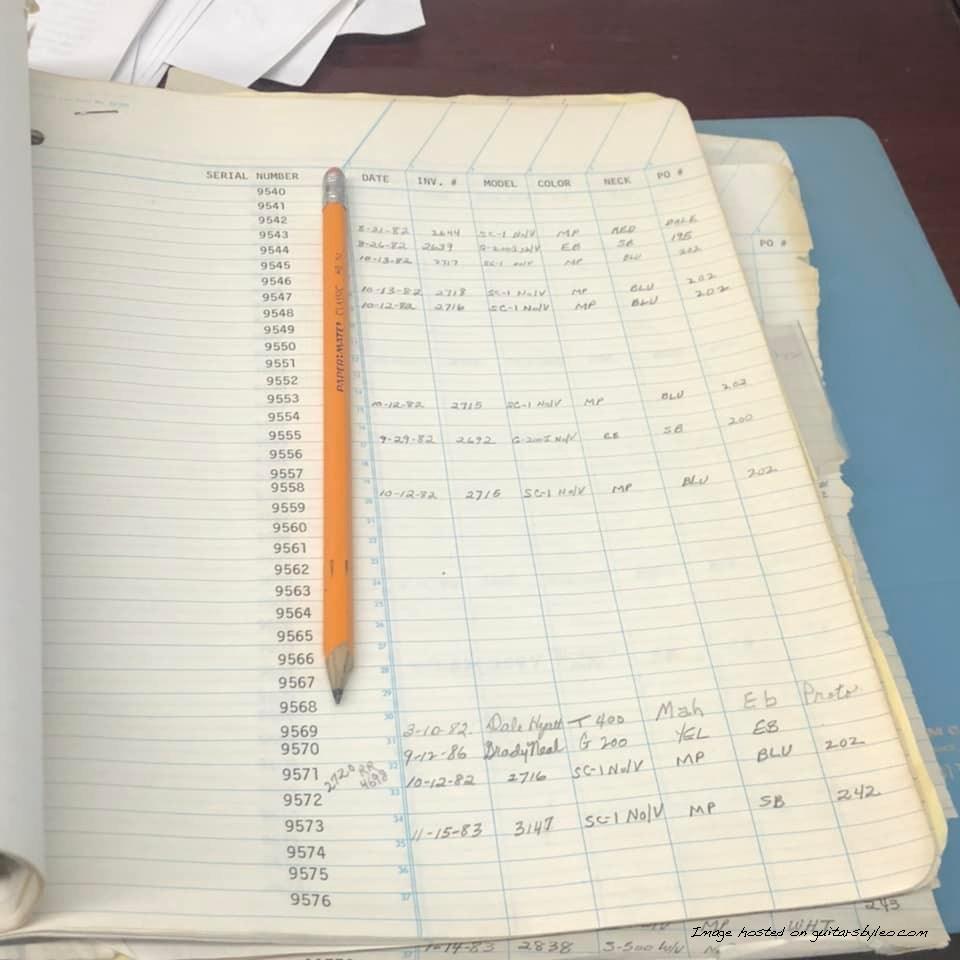 SERIAL NUMBER DATE INV. # MODEL COLOR NECK PO #
9540
9541
9542
9543 8-21-82 2644 SC-1 No/V MP RED DALE
9544 8-26-82 2639 G-200S No/V EB SB 195
9545 10-13-82 2717 SC-1 No/V MP BLU 202
9546
9547 10-13-82 2718 SC-1 No/V MP BLU 202
9548 10-12-82 2716 SC-1 No/V MP BLU 202
9549
9550
9551
9552
9553 10-12-82 2715 SC-1 No/V MP BLU 202
9554
9555 9-29-82 2692 G-200S No/V EB SB 200
9556
9557
9558 10-12-82 2715 SC-1 No/V MP BLU 202
9559
9560
9561
9562
9563
9564
9565
9566
9567
9568
9569 3-10-82 Dale Hyatt T 400 Mah Eb Proto
9570 9-12-86 Brady Neal G 200 YEL EB
9571 2720 RR 4698 10-12-82 2716 SC-1 No/V MP BLU 202
9572
9573 11-15-83 3147 SC-1 No/V MP SB 242
9574
9575
9576
PAPER:MATE CLASSIC
PO #
243
1-14-83 2838 S-500 W/V MP WHT
Image hosted on guitarsbyleo.com